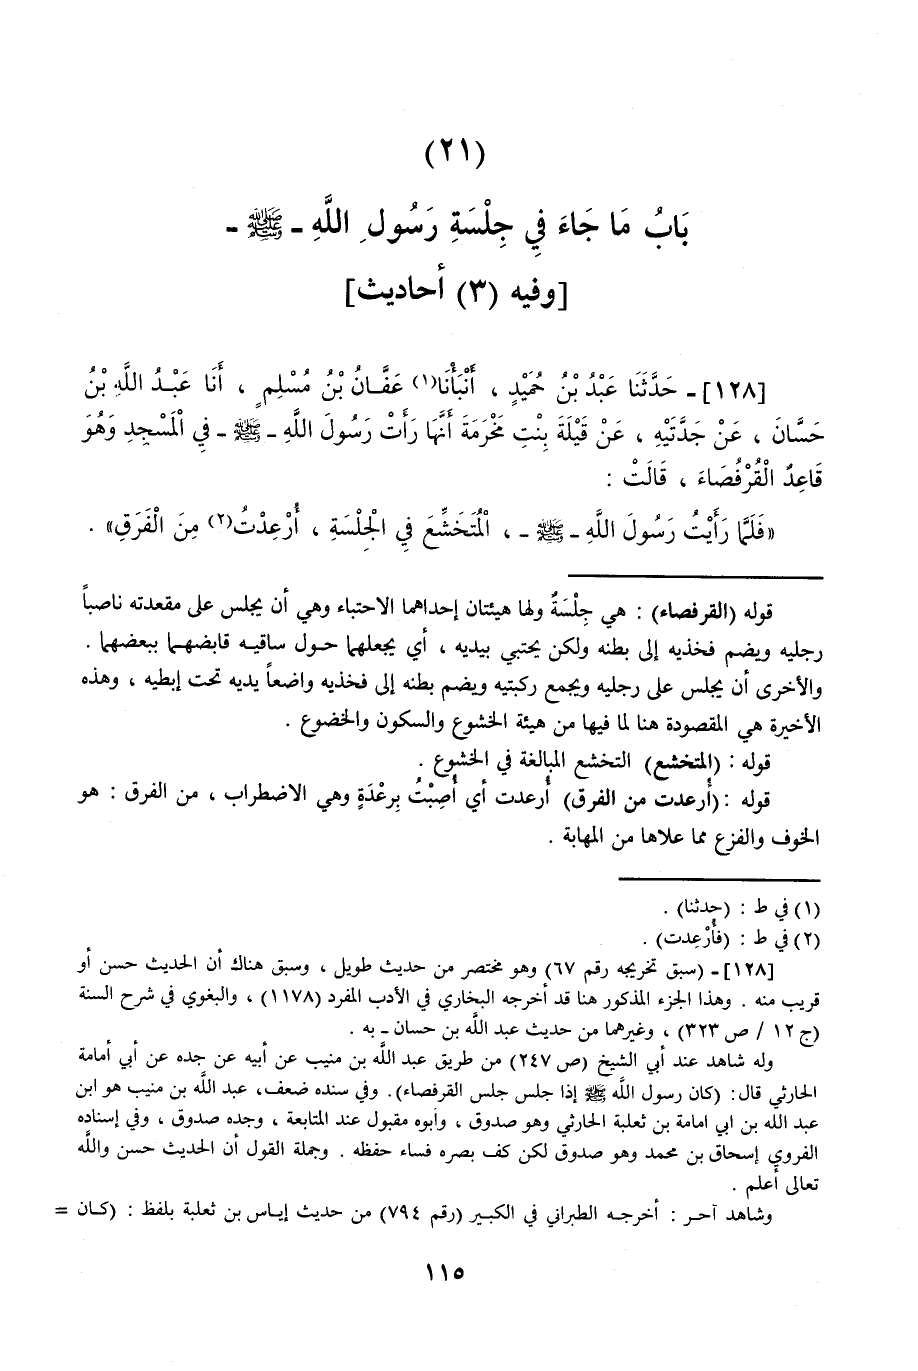 (٢١)
بَابُ مَا جَاءَ فِي جِلْسَةِ رَسُولِ اللَّهِ ـ ﷺ ـ
[وفيه (٣) أحاديث]
[١٢٨] ـ حَدَّثَنَا عَبْدُ بْنُ حُمَيْدٍ ، أَنْبَأْنَا(١) عَفَّانُ بْنُ مُسْلِمٍ ، أَنَا عَبْدُ اللَّهِ بْنُ
حَسَّانَ ، عَنْ جَدَّتَيْهِ ، عَنْ قَيْلَةَ بِنْتِ مَخْرَمَةَ أَنَّهَا رَأَتْ رَسُولَ اللَّهِ ـ ﷺ ـ فِي الْمَسْجِدِ وَهُوَ
قَاعِدٌ الْقُرْفُصَاءَ ، قَالَتْ :
«فَلَمَّا رَأَيْتُ رَسُولَ اللَّهِ ـ ﷺ ـ ، الْمُتَخَشِّعَ فِي الْجِلْسَةِ ، أُرْعِدْتُ(٢) مِنَ الْفَرَقِ» .
قوله (القرفصاء) : هي جِلْسَةٌ ولها هيئتان إحداهما الاحتباء وهي أن يجلس على مقعدته ناصباً
رجليه ويضم فخذيه إلى بطنه ولكن يحتبي بيديه ، أي يجعلهما حول ساقيه قابضهما ببعضهما .
والأخرى أن يجلس على رجليه ويجمع ركبتيه ويضم بطنه إلى فخذيه واضعاً يديه تحت إبطيه ، وهذه
الأخيرة هي المقصودة هنا لما فيها من هيئة الخشوع والسكون والخضوع .
قوله : (المتخشع) التخشع المبالغة في الخشوع .
قوله : (أُرعدت من الفرق) أُرعدت أي أُصِبْتُ بِرعْدَةٍ وهي الاضطراب ، من الفرق : هو
الخوف والفزع مما علاها من المهابة .
(١) في ط : (حدثنا) .
(٢) في ط : (فأُرْعِدت) .
[١٢٨] ـ (سبق تخريجه رقم ٦٧) وهو مختصر من حديث طويل ، وسبق هناك أن الحديث حسن أو
قريب منه . وهذا الجزء المذكور هنا قد أخرجه البخاري في الأدب المفرد (١١٧٨) ، والبغوي في شرح السنة
(ج ١٢ / ص ٣٢٣) ، وغيرهما من حديث عبد اللَّه بن حسان ـ به .
وله شاهد عند أبي الشيخ (ص ٢٤٧) من طريق عبد اللَّه بن منيب عن أبيه عن جده عن أبي أمامة
الحارثي قال: (كان رسول اللَّه ﷺ إذا جلس جلس القرفصاء). وفي سنده ضعف، عبد اللَّه بن منيب هو ابن
عبد الله بن ابي امامة بن ثعلبة الحارثي وهو صدوق ، وأبوه مقبول عند المتابعة ، وجده صدوق ، وفي إسناده
الفروي إسحاق بن محمد وهو صدوق لكن كف بصره فساء حفظه . وجملة القول أن الحديث حسن واللَّه
تعالى أعلم .
وشاهد آخر : أخرجه الطبراني في الكبير (رقم ٧٩٤) من حديث إياس بن ثعلبة بلفظ : (كان =
١١٥